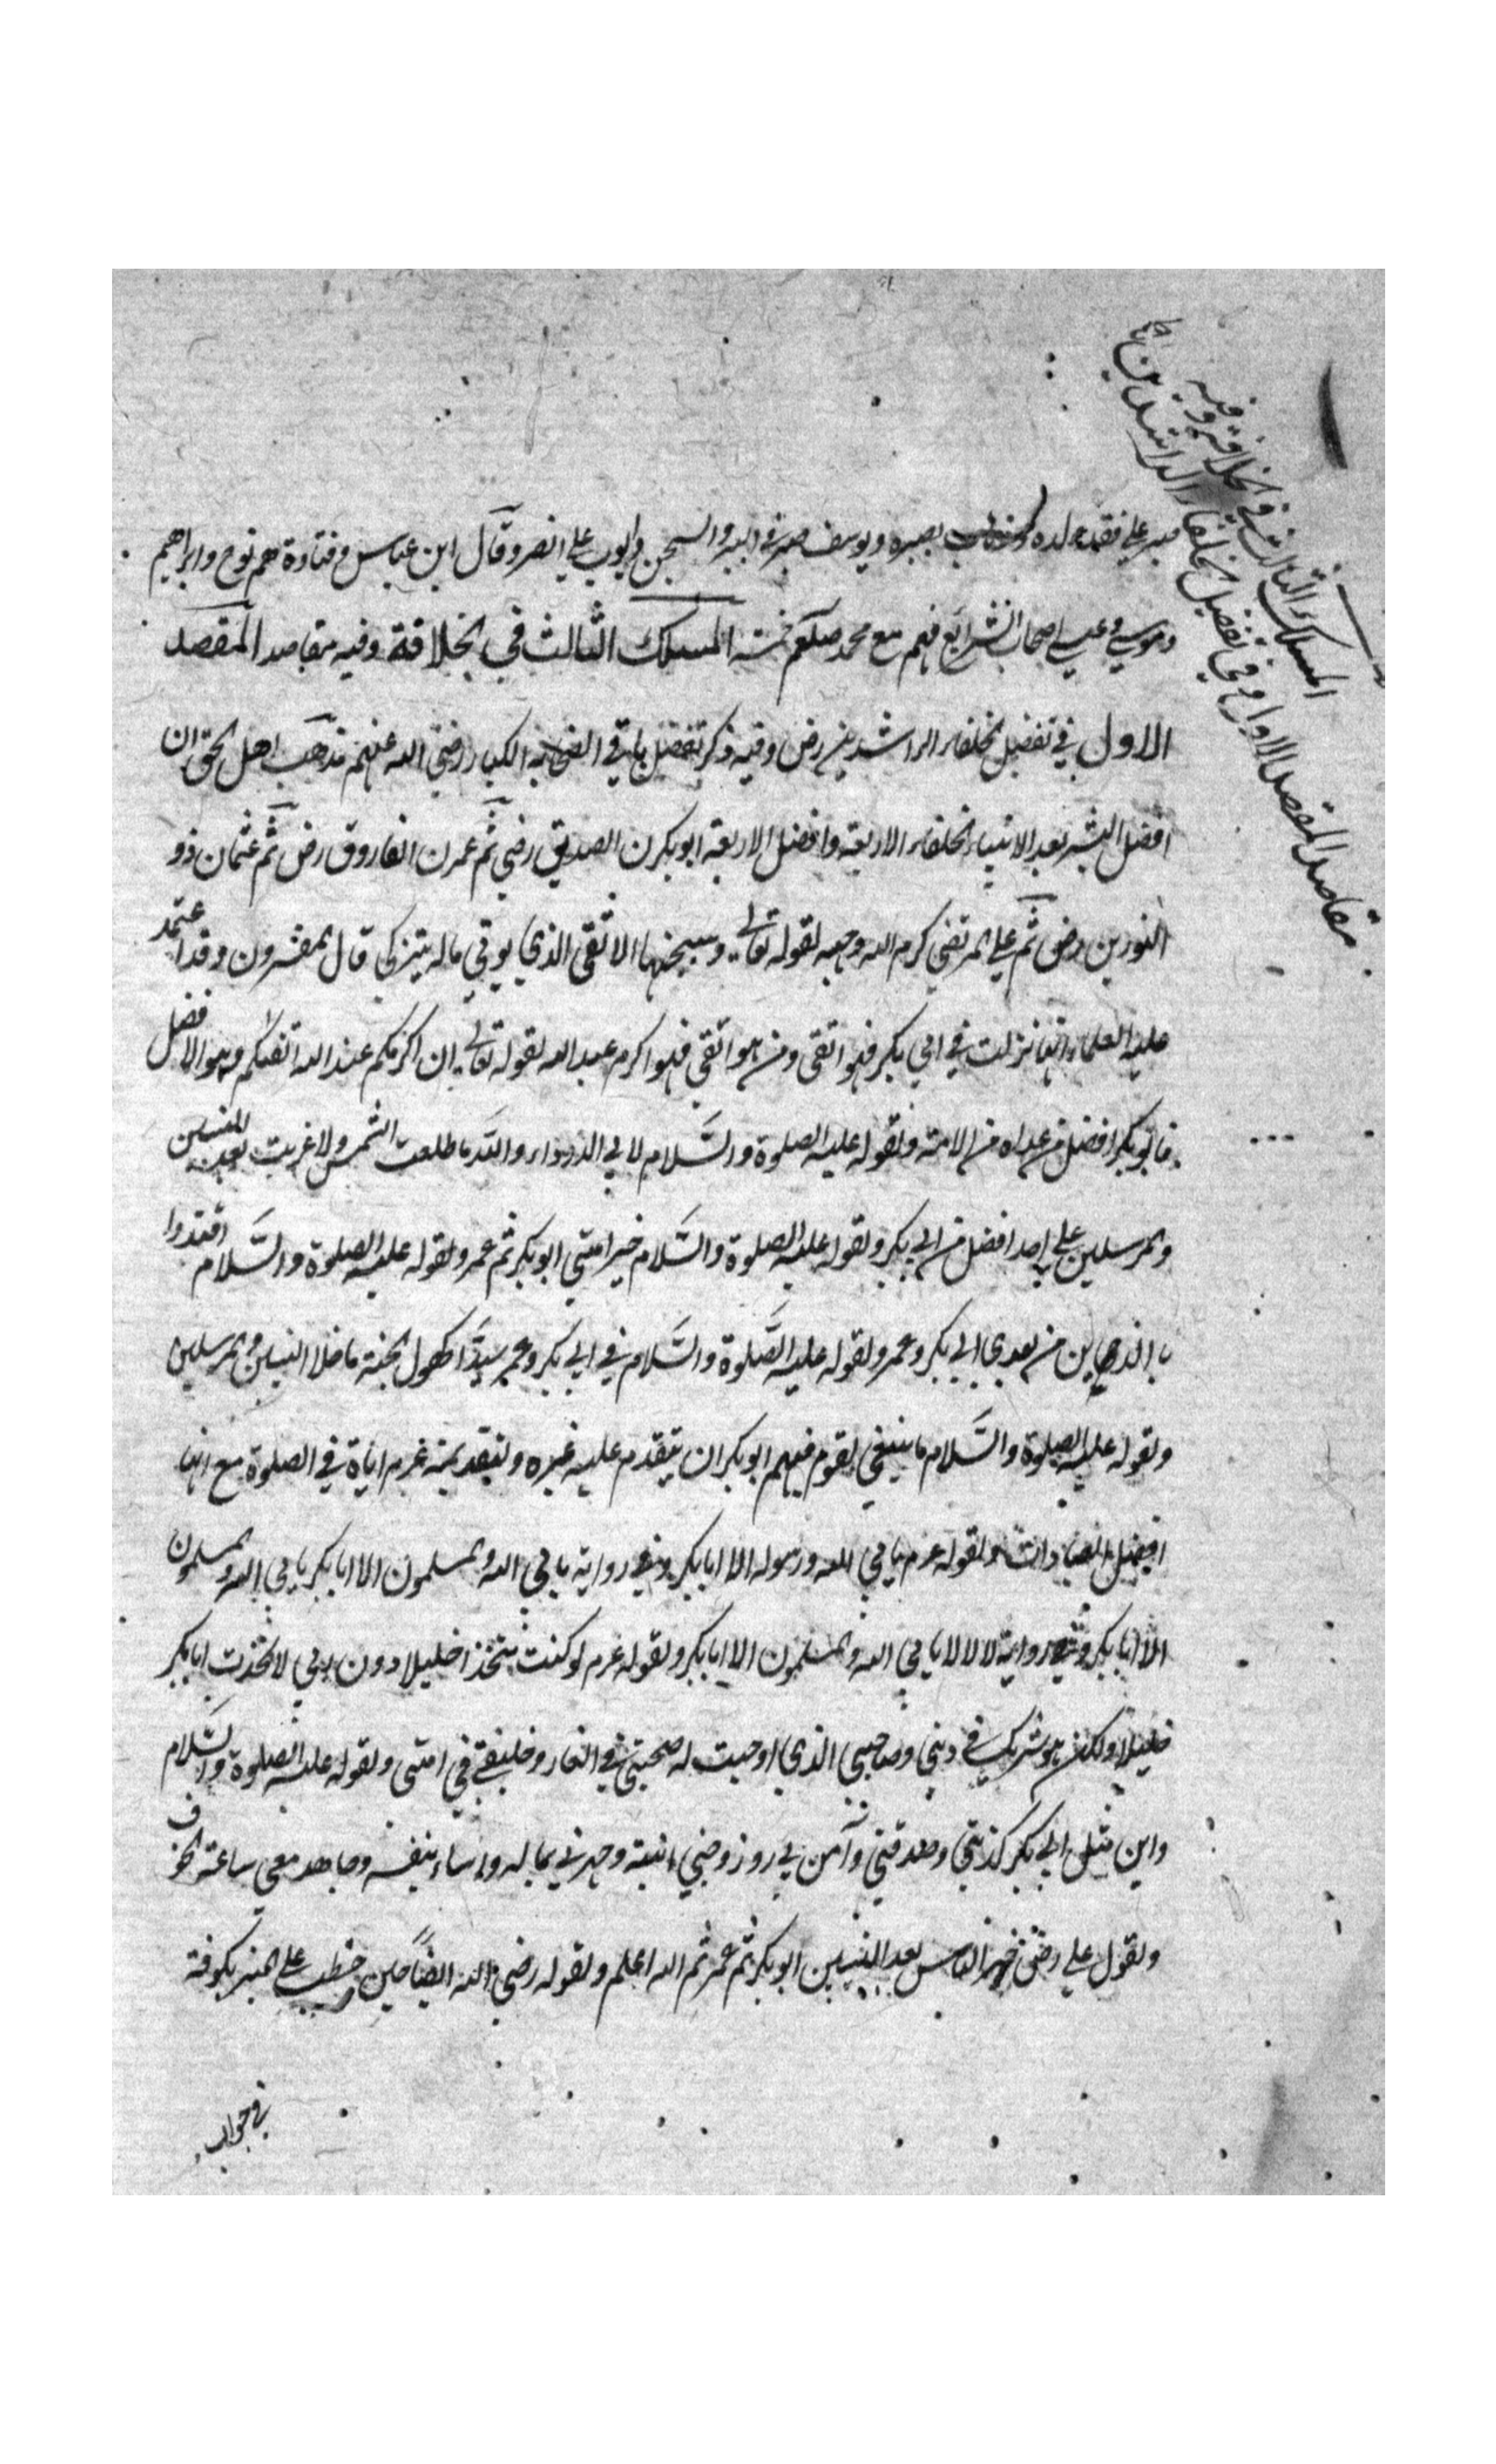 المسلك الثالث في الخلافة وفيه
مقاصد المقصد الاول في تفضيل الخلفاء الراشدين
صبر علي فقد ولده بصبره ويوسف صبر في البير والسجن وايوب علي الضر وقال ابن عباس وقتادة هم نوح وابراهيم
وموسي وعيسي اصحاب الشرايع فهم مع محمد صلعم خمسه المسلك الثالث في الخلافة وفيه مقاصد المقصد
الاول في تفضيل الخلفاء الراشدين رض وفيه ذكر تفضيل باقي الصحابه الكبار رضي الله عنهم مذهب اهل الحق ان
افضل البشر بعد الانبياء الخلفاء الاربعة وافضل الاربعة ابو بكرن الصديق رضي ثم عمرن الفاروق رض ثم عثمان ذو
النورين رض ثم علي المرتضي كرم الله وجهه لقوله تعالي وسيجنبها الاتقي الذي يوتي ماله يتزكي قال المفسرون وقد اعتمد
عليه العلماء انها نزلت في ابي بكر فهو اتقي ومن هو اتقي فهو اكرم عند الله لقوله تعالي ان اكرمكم عند الله اتقيكم وهو الافضل
فابو بكر افضل من عداه من الامة ولقوله عليه الصلوة والسلام لابي الدرداء والله ما طلعت الشمس ولا غربت بعد النبيين
والمرسلين علي احد افضل من ابي بكر ولقوله عليه الصلوة والسلام خير امتي ابو بكر ثم عمر ولقوله عليه الصلوة والسلام اقتدوا
بالذين من بعدي ابي بكر وعمر ولقوله عليه الصلوة والسلام في ابي بكر وعمر سيدا كهول الجنة ما خلا النبيين والمرسلين
ولقوله عليه الصلوة والسلام ما ينبغي لقوم فيهم ابو بكر ان يتقدم عليه غيره ولتقديمه عم اياه في الصلوة مع انها
افضل العبادات ولقوله عم يابي الله ورسوله الا ابا بكر وفي رواية يابي الله والمسلمون الا ابا بكر يابي الله والمسلمون
الا ابا بكر رواية لا لا لا يابي الله والمسلمون الا ابا بكر ولقوله عم لو كنت متخذا خليلا دون ربي لاتخذت ابا بكر
خليلا ولكن هو شريك في ديني وصاحبي الذي اوجبت له صحبتي في الغار وخليفتي في امتي ولقوله عليه الصلوة والسلام
واين مثل ابي بكر كذبني وصدقني وآمن بي وزوجني ابنته وجهزني بماله وواساني بنفسه وجاهد معي ساعة الخوف
ولقول علي رضي خير الناس بعد النبيين ابو بكر ثم عمر ثم الله اعلم ولقوله رضي الله ايضا حين خطب علي المنبر بكوفة
في جواب